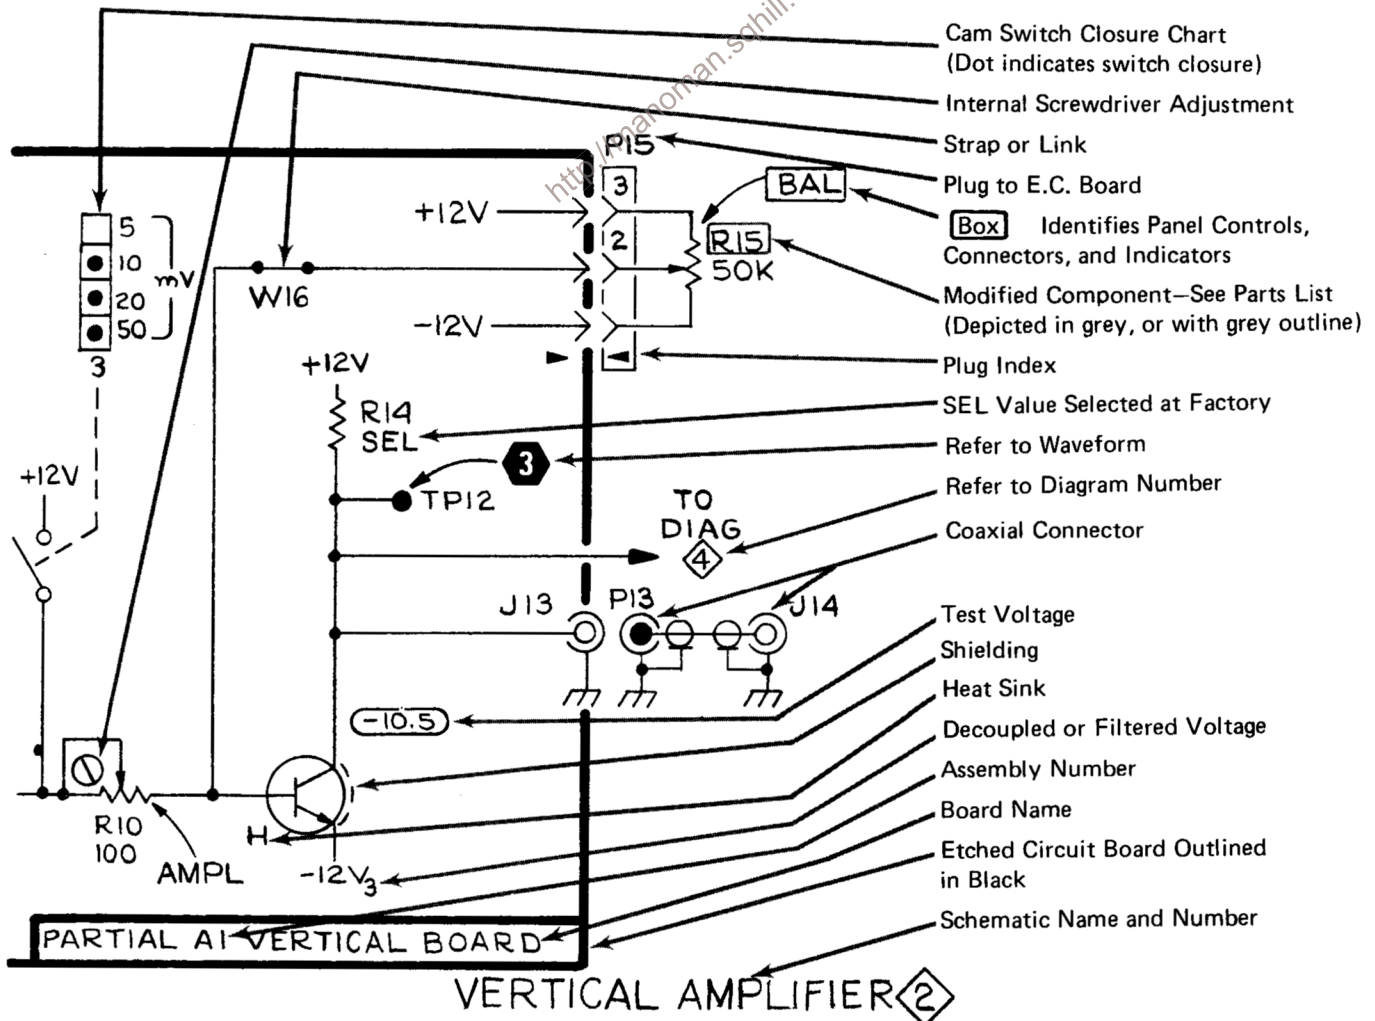 http://manoman.sqhill.
Cam Switch Closure Chart
(Dot indicates switch closure)
Internal Screwdriver Adjustment
Strap or Link
Plug to E.C. Board
Box Identifies Panel Controls,
Connectors, and Indicators
Modified Component—See Parts List
(Depicted in grey, or with grey outline)
Plug Index
SEL Value Selected at Factory
Refer to Waveform
Refer to Diagram Number
Coaxial Connector
Test Voltage
Shielding
Heat Sink
Decoupled or Filtered Voltage
Assembly Number
Board Name
Etched Circuit Board Outlined
in Black
Schematic Name and Number
P15
3
BAL
+12V
2
R15
50K
-12V
5
10
20
50
mV
3
W16
+12V
R14
SEL
3
TP12
+12V
TO
DIAG
4
J13
P13
J14
-10.5
R10
100
AMPL
H
-12V3
PARTIAL A1 VERTICAL BOARD
VERTICAL AMPLIFIER 2